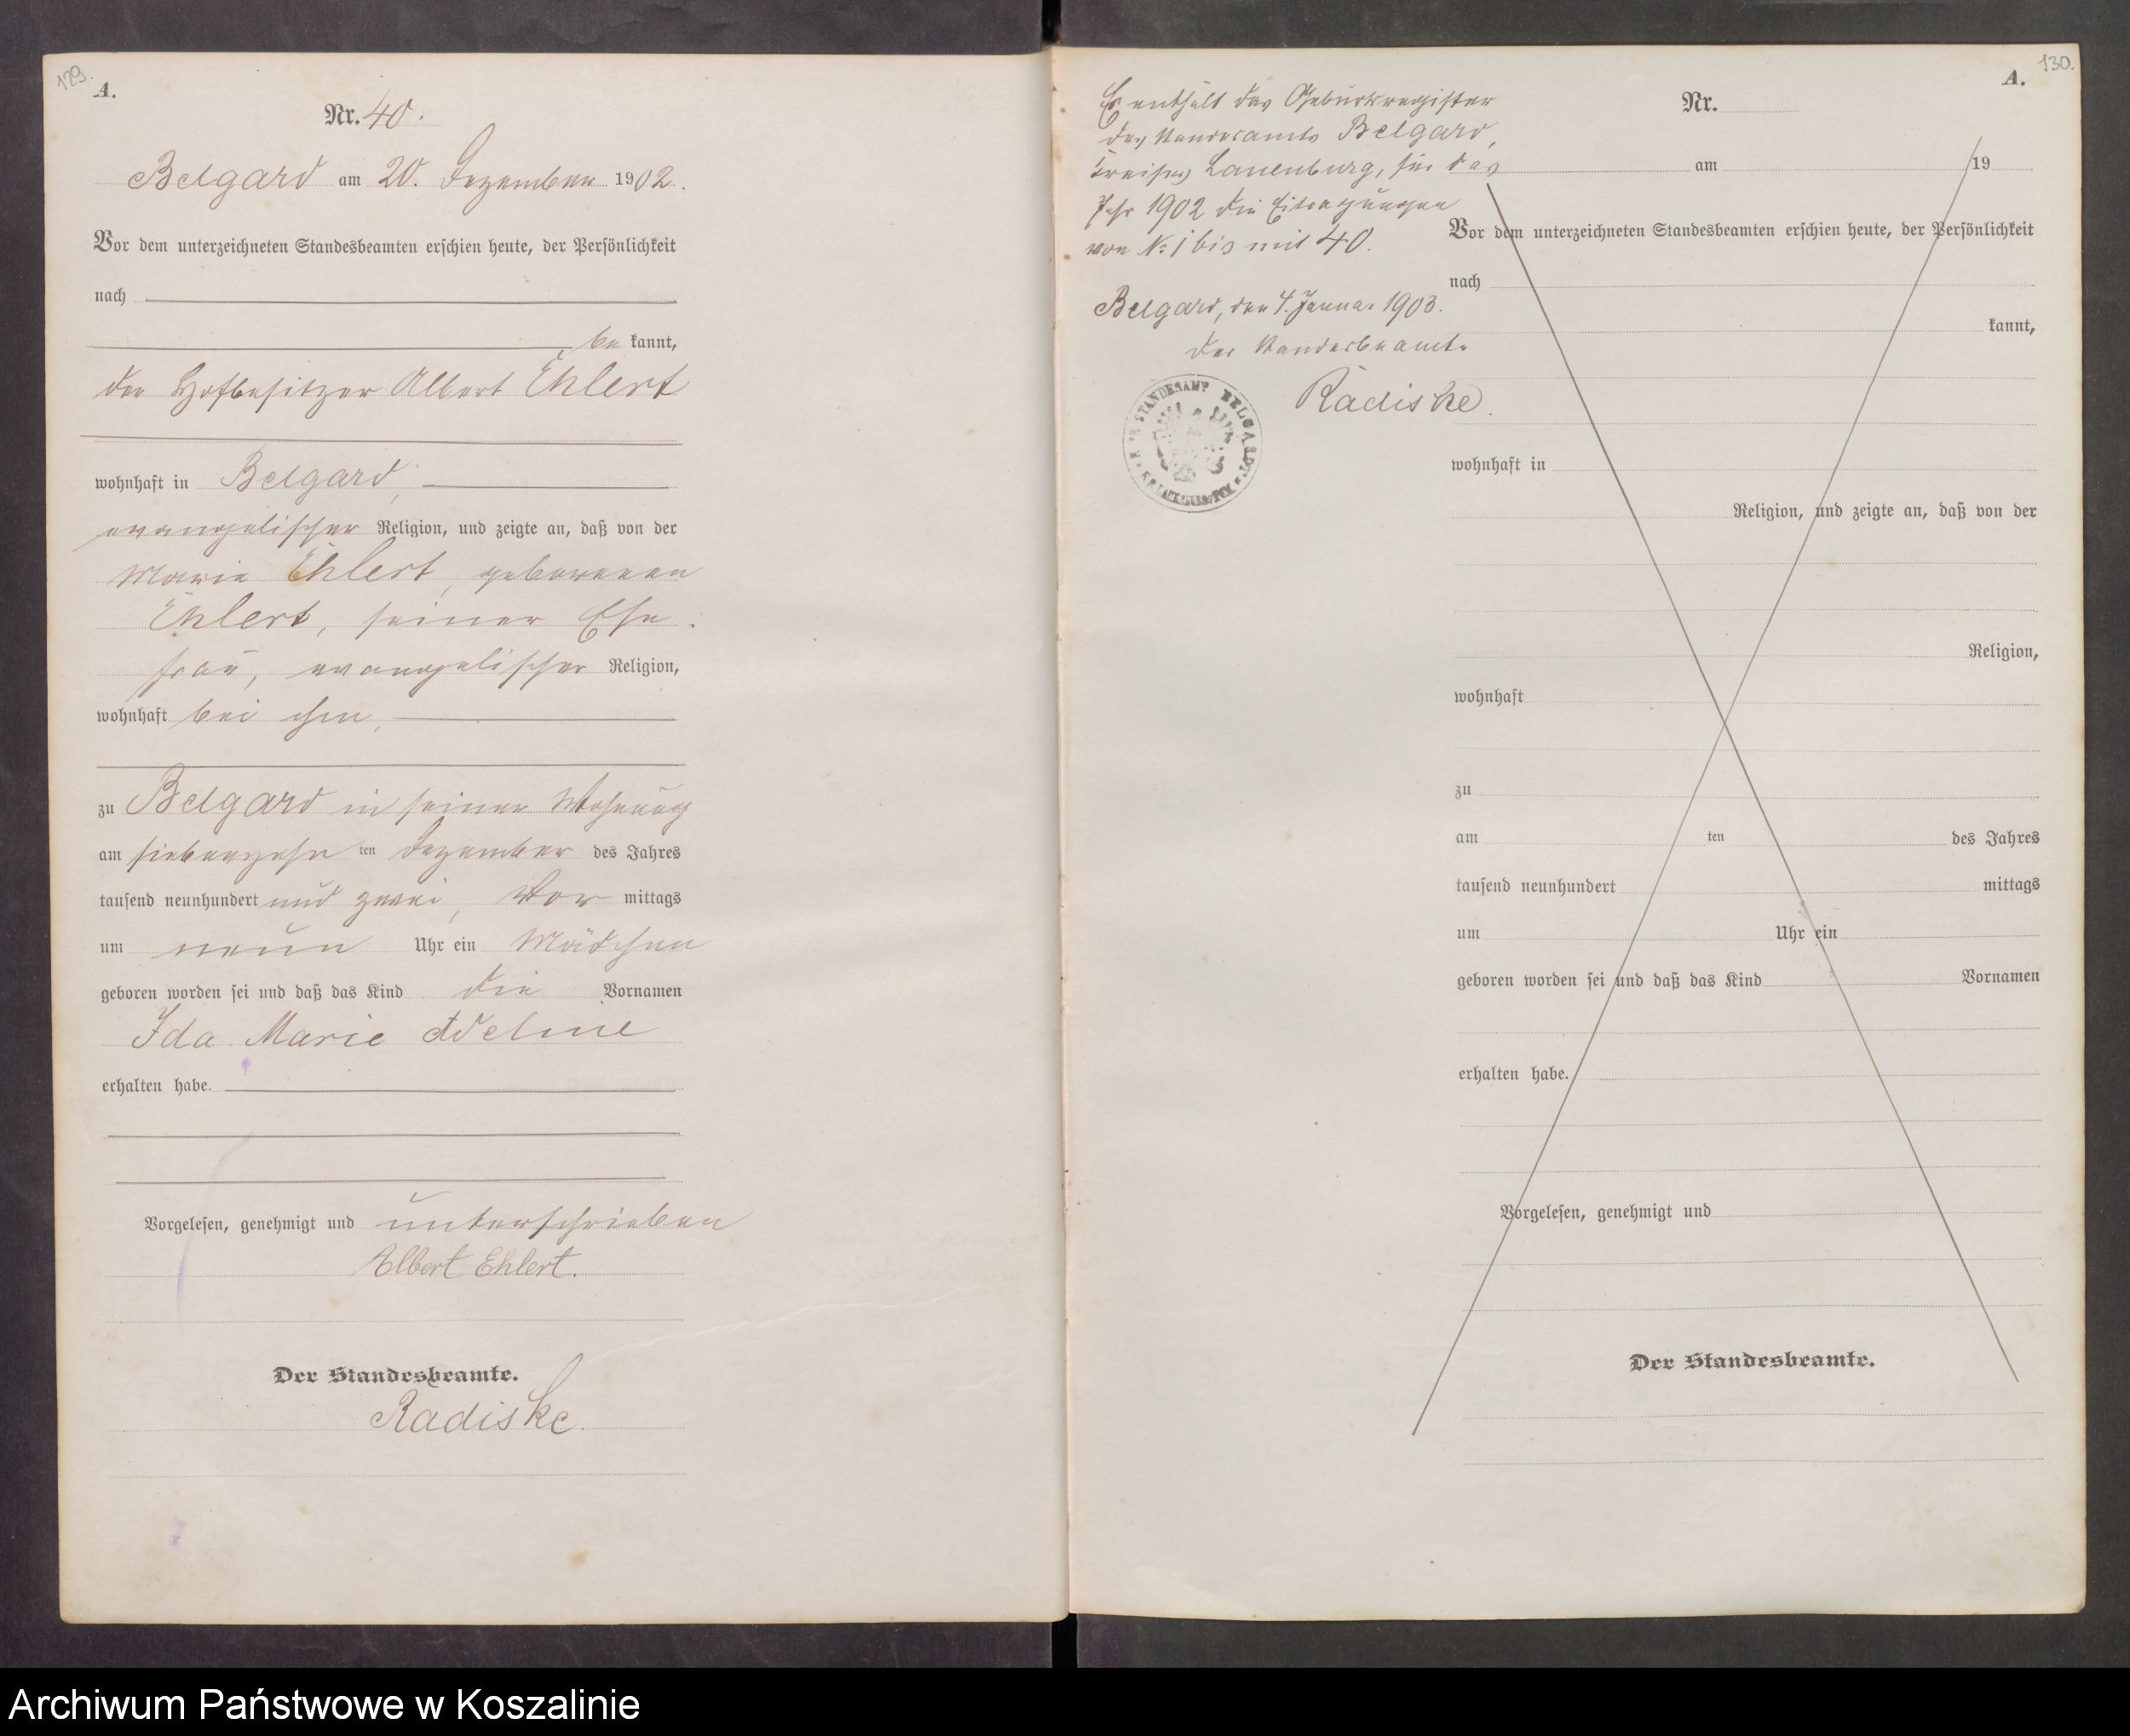 129.
A.
Nr. 40.
Belgard am 20. Dezember 1902.
Vor dem unterzeichneten Standesbeamten erschien heute, der Persönlichkeit
nach
be kannt,
der Hofbesitzer Albert Ehlert
wohnhaft in Belgard,
evangelischer Religion, und zeigte an, daß von der
Marie Ehlert, geborenen
Ehlert, seiner Ehe-
frau, evangelischer Religion,
wohnhaft bei ihm,
zu Belgard in seiner Wohnung
am siebenzehn ten Dezember des Jahres
tausend neunhundert und zwei, Vor mittags
um neun Uhr ein Mädchen
geboren worden sei und daß das Kind die Vornamen
Ida Marie Adeline
erhalten habe.
Vorgelesen, genehmigt und unterschrieben
Albert Ehlert.
Der Standesbeamte.
Radiske.
130.
A.
Es enthält das Geburtsregister
des Standesamts Belgard,
Kreises Lauenburg, für das
Jahr 1902 die Eitragungen
von No 1 bis mit 40.
Belgard, den 4. Januar 1903.
Der Standesbeamte
Radiske.
STANDESAMT BELGARD
Nr.
am 19
Vor dem unterzeichneten Standesbeamten erschien heute, der Persönlichkeit
nach
kannt,
wohnhaft in
Religion, und zeigte an, daß von der
Religion,
wohnhaft
zu
am ten des Jahres
tausend neunhundert mittags
um Uhr ein
geboren worden sei und daß das Kind Vornamen
erhalten habe.
Vorgelesen, genehmigt und
Der Standesbeamte.
Archiwum Państwowe w Koszalinie